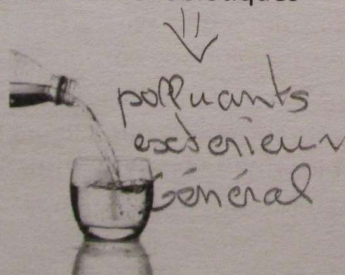 polluants
exterieur
Général